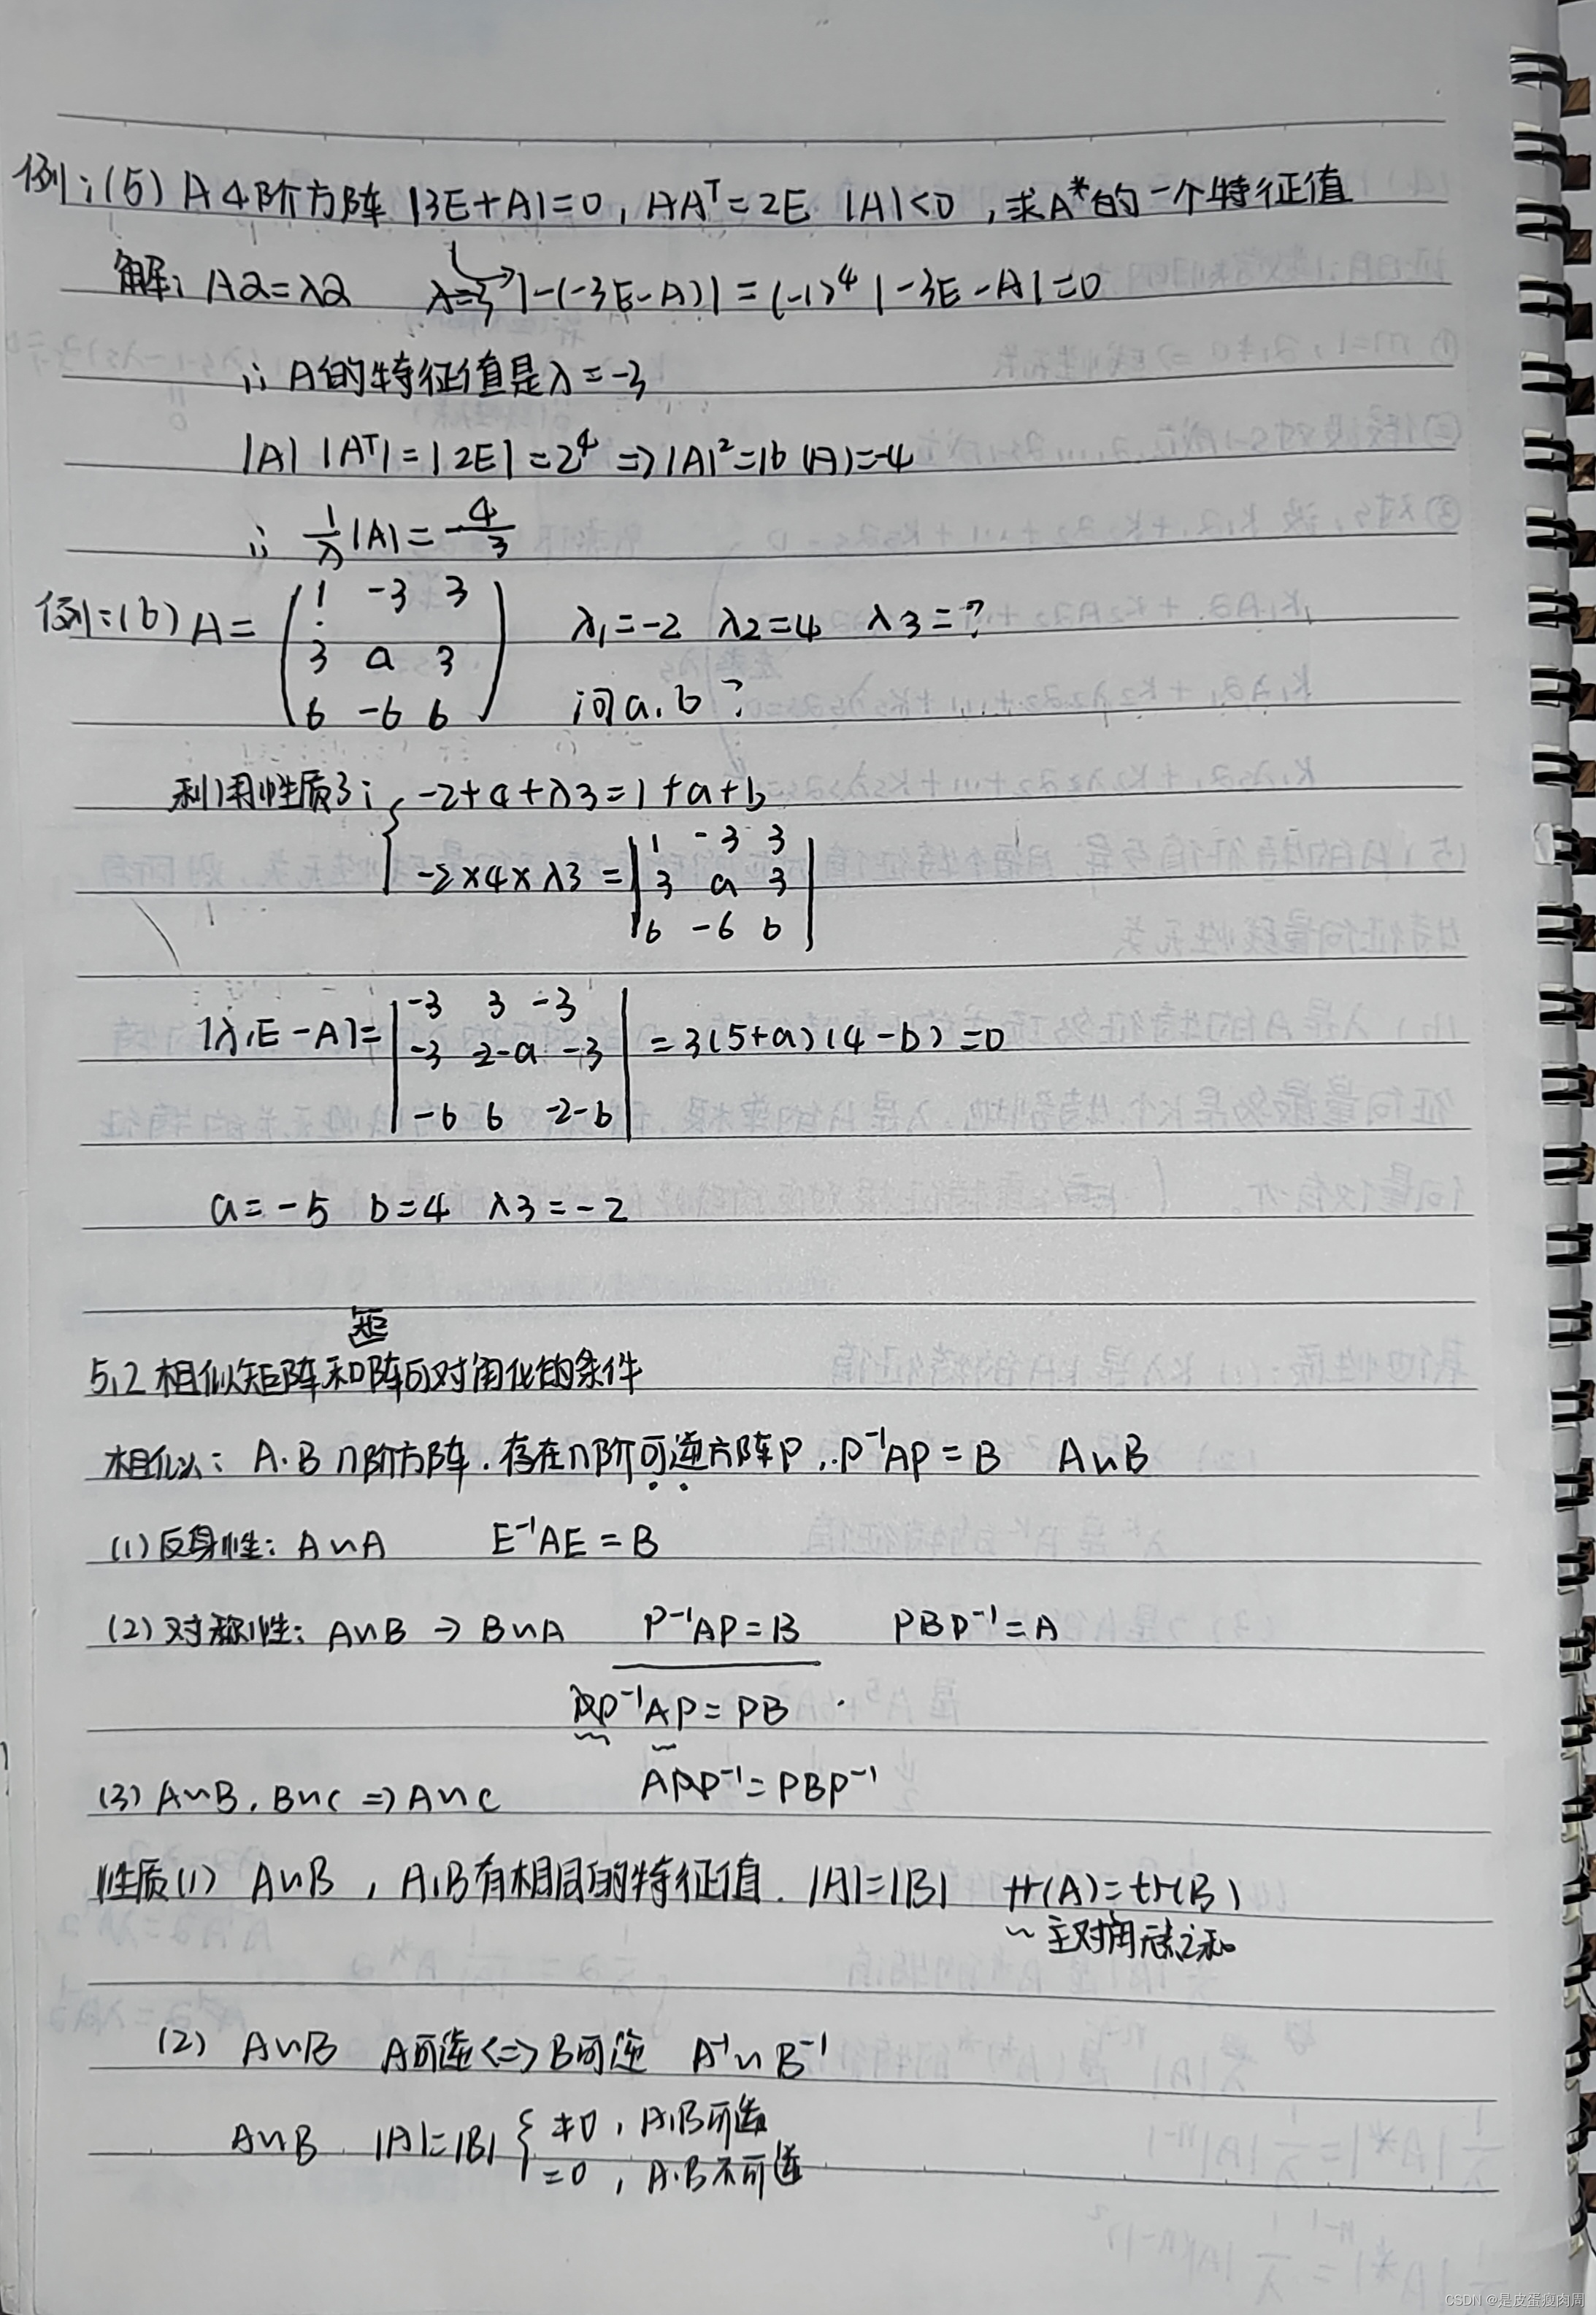 例:(5) A 4阶方阵 |3E+A|=0, AA^T=2E |A|<0, 求A*的一个特征值
解: Aα=λα λ=-3 |-(-3E-A)|=(-1)^4 |-3E-A|=0
∴ A的特征值是λ=-3
|A| |A^T|=|2E|=2^4 => |A|^2=16 |A|=-4
∴ 1/λ |A|= 4/3
例:(6) A= ( 1 -3 3 λ1=-2 λ2=4 λ3=?
3 a 3
6 -6 b ) 问a.b ?
利用性质3: { -2+4+λ3=1+a+b
-2×4×λ3 = | 1 -3 3
3 a 3
6 -6 b |
|λ1E-A|= | -3 3 -3
-3 2-a -3 | =3(5+a)(4-b)=0
-6 6 -2-b |
a=-5 b=4 λ3=-2
矩
5.2 相似矩阵和阵可对角化的条件
相似: A.B n阶方阵. 存在n阶可逆方阵P, P^-1AP=B A∽B
(1) 反身性: A∽A E^-1AE=B
(2) 对称性: A∽B → B∽A P^-1AP=B PBP^-1=A
PP^-1AP=PB
(3) A∽B, B∽C => A∽C APP^-1=PBP^-1
性质(1) A∽B, A,B有相同的特征值. |A|=|B| tr(A)=tr(B)
~ 主对角元素之和
(2) A∽B A可逆<=>B可逆 A^-1∽B^-1
A∽B |A|=|B| { ≠0, A,B可逆
=0, A.B不可逆
CSDN @是皮蛋瘦肉周